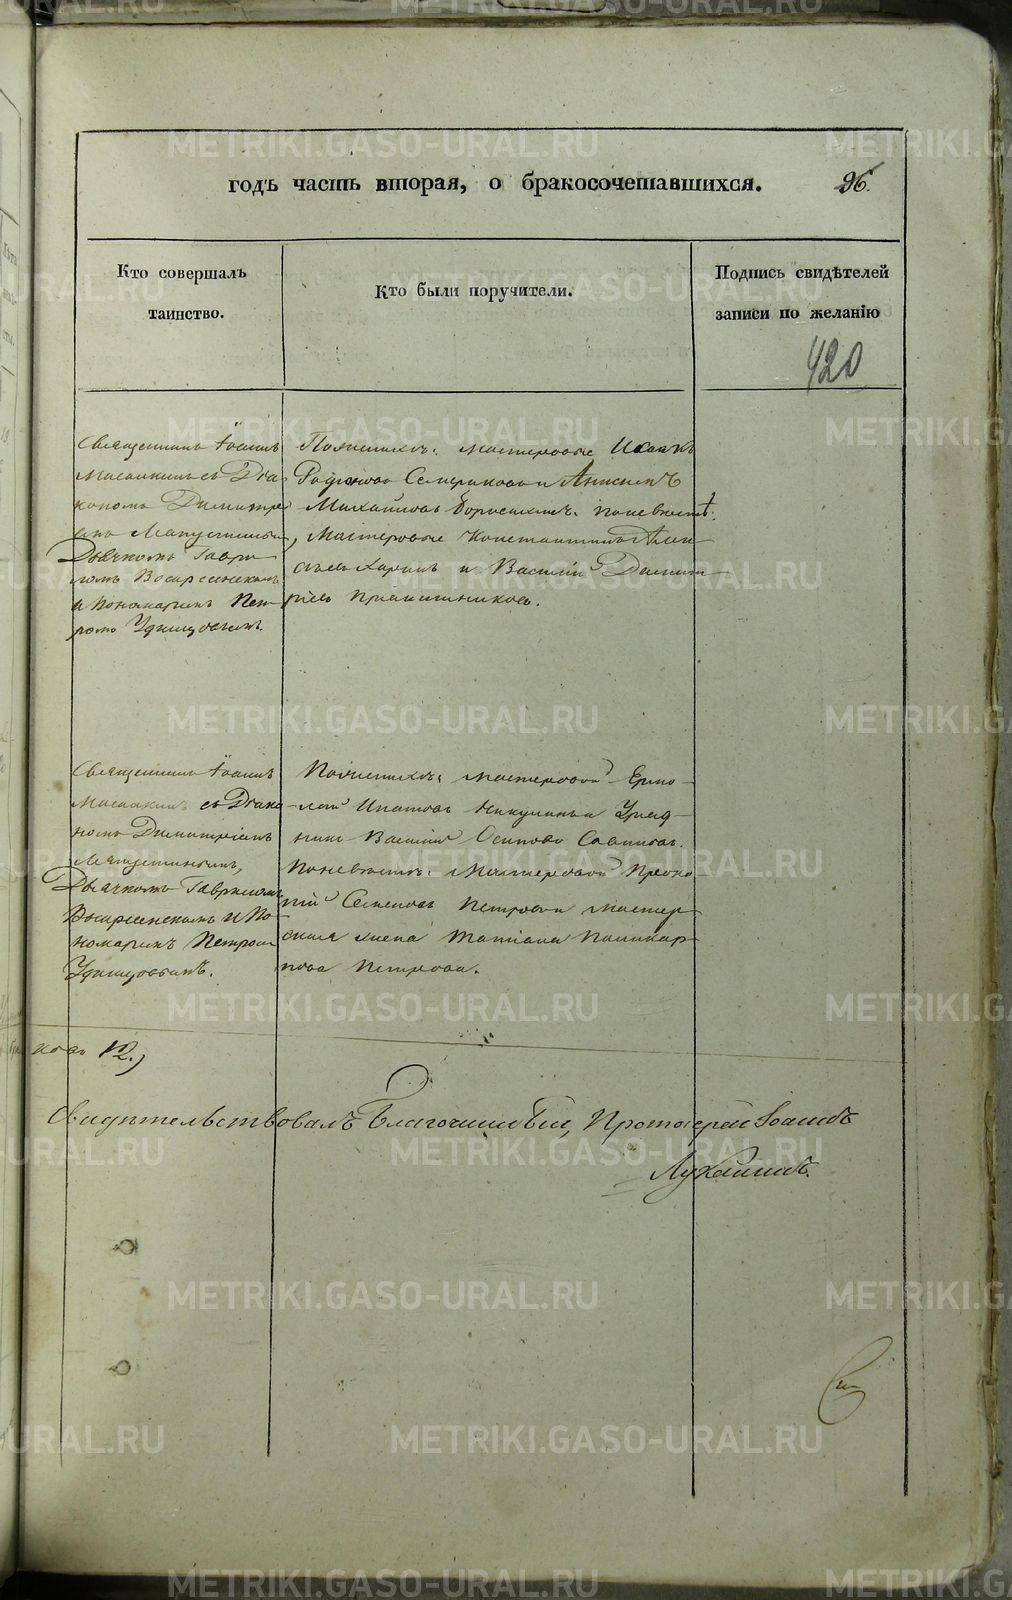 годъ часть вторая, о бракосочетавшихся.
96.
Кто совершалъ
таинство.
Кто были поручители.
Подпись свидѣтелей
записи по желанію
420
Священникъ Іоаннъ
съ Діа-
кономъ Димитріе-
Дьячкомъ Гаври-
ломъ Воскресенскимъ
и Пономаремъ Пет-
ромъ Удинцовымъ.
По женихѣ: мастеровые Исаакъ
Родіоновъ и Анисимъ
Михайловъ по невѣстѣ:
Мастеровые Константинъ Алек-
и Василій Димит-
ріевъ
Священникъ Іоаннъ
съ Діако-
номъ Димитріемъ
Дьячкомъ Гавриломъ
Воскресенскимъ и По-
номаремъ Петромъ
Удинцовымъ.
По женихѣ: мастеровой Ермо-
лай Ипатовъ Никулинъ и Уряд-
никъ Василій Осиповъ
По невѣстѣ: Мастеровой Проко-
пій Семеновъ Петровъ и мастер-
ская жена Татіана Поликар-
пова Петрова.
12.)
Свидѣтельствовалъ Благочинный, Протоіерей Іоаннъ
Луканинъ.
METRIKI.GASO-URAL.RU